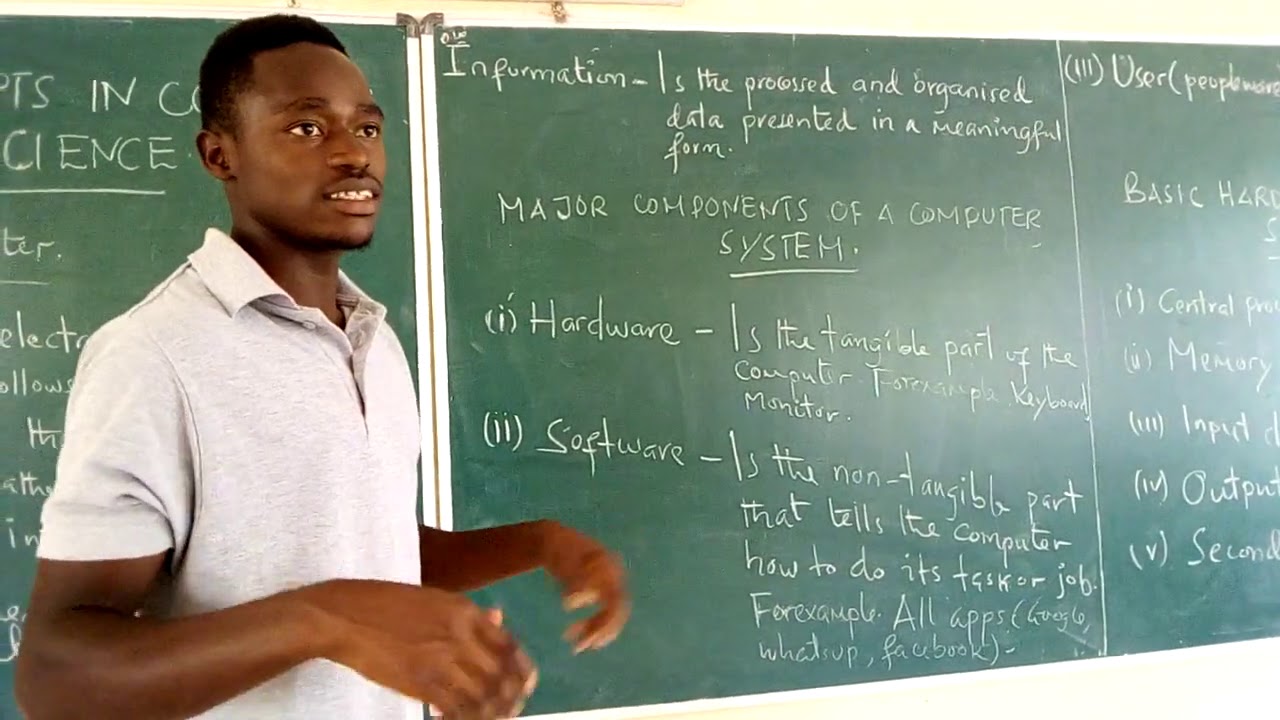 PTS IN CO
CIENCE.
ter.
electr
ollows
th
in
Information - Is the processed and organised
data presented in a meaningful
form.
MAJOR COMPONENTS OF A COMPUTER
SYSTEM.
(i) Hardware - Is the tangible part of the
Computer. Forexample. Keyboard,
Monitor.
(ii) Software - Is the non-tangible part
that tells the Computer
how to do its task or job.
Forexample. All apps (Google,
whatsup, facebook) -
(III) User (peopleware
BASIC HAR
S
(i) Central pro
(ii) Memory
(III) Input d
(iv) Output
(v) Second